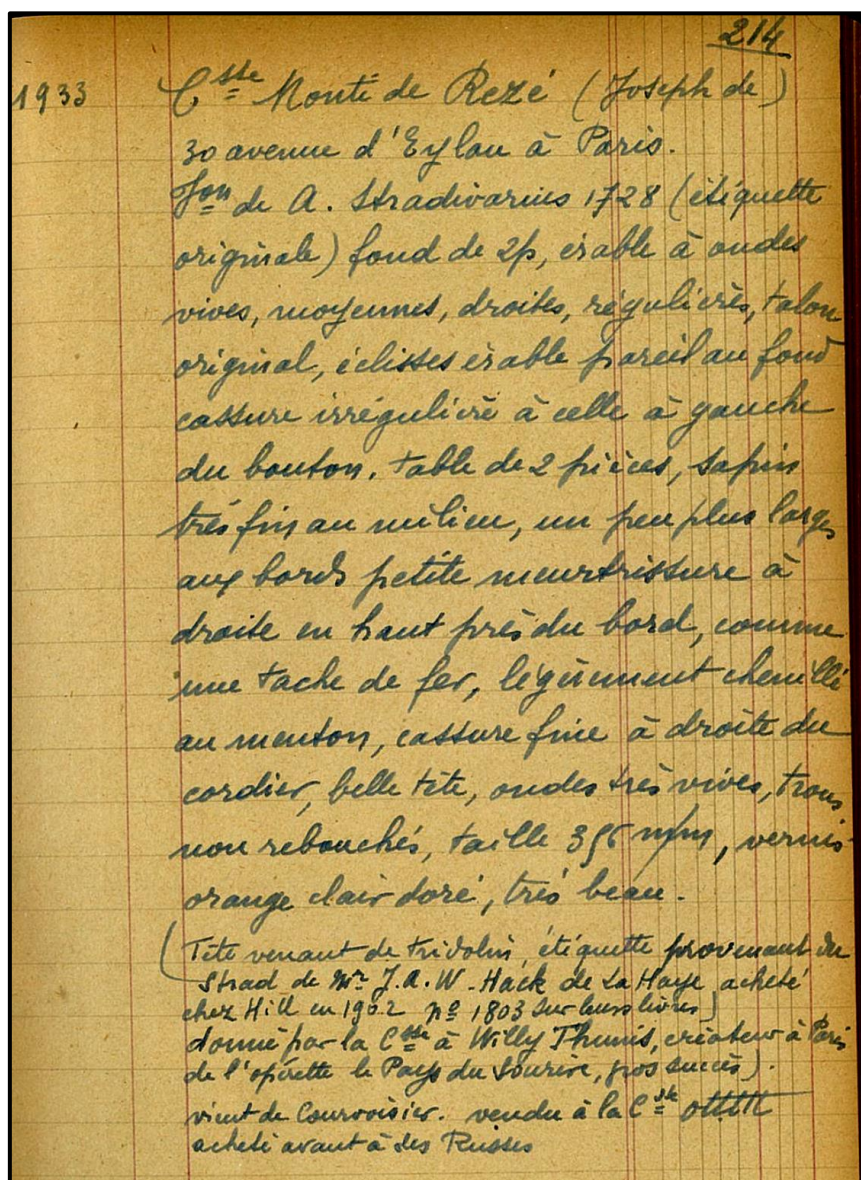 214
1933 Csse Monti de Rezé (Joseph de)
30 avenue d'Eylau à Paris.
de A. Stradivarius 1728 (étiquette
originale) fond de 2p, érable à ondes
vives, moyennes, droites, régulières, talon
original, éclisses érable pareil au fond
cassure irrégulière à celle à gauche
du bouton. table de 2 pièces, sapin
très fin au milieu, un peu plus large
aux bords petite meurtrissure à
droite en haut près du bord, comme
une tache de fer, légèrement chenillé
au menton, cassure fine à droite du
cordier, belle tête, ondes très vives, trous
non rebouchés, taille m/m, vernis
orange clair doré, très beau.
(Tête venant de étiquette provenant du
Strad de Mr J.A.W. Hack de La Haye acheté
chez Hill en 1902 no 1803 sur leurs livres)
donné par la Csse à Willy Thunis, créateur à Paris
de l'opérette le Pays du Sourire, gros succès).
vient de Courvoisier. vendu à la Csse
acheté avant à des Russes